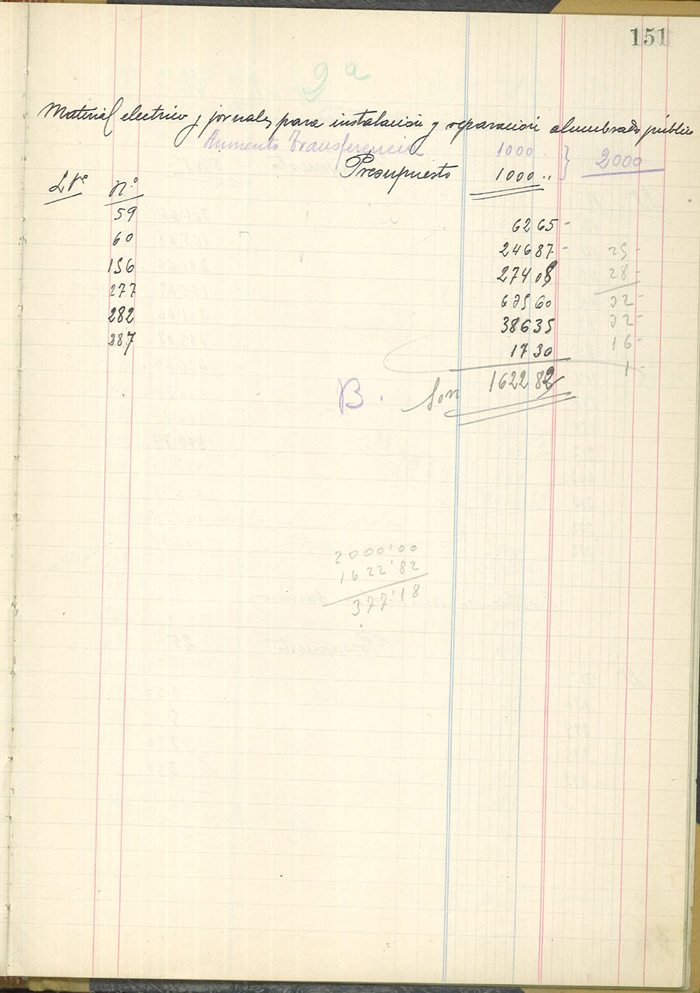 151
Material electrico y jornales para instalación y reparación alumbrado público
Aumento Transferencia 1000 .. } 2000
Presupuesto 1000 ..
Lbº Nº
59 62 65 -
60 246 87 - 25 -
156 274 08 28 -
277 635 60 22 -
282 386 35 22 -
287 17 30 16 -
1 -
B. Son 1622 82
2000'00
1622'82
377'18